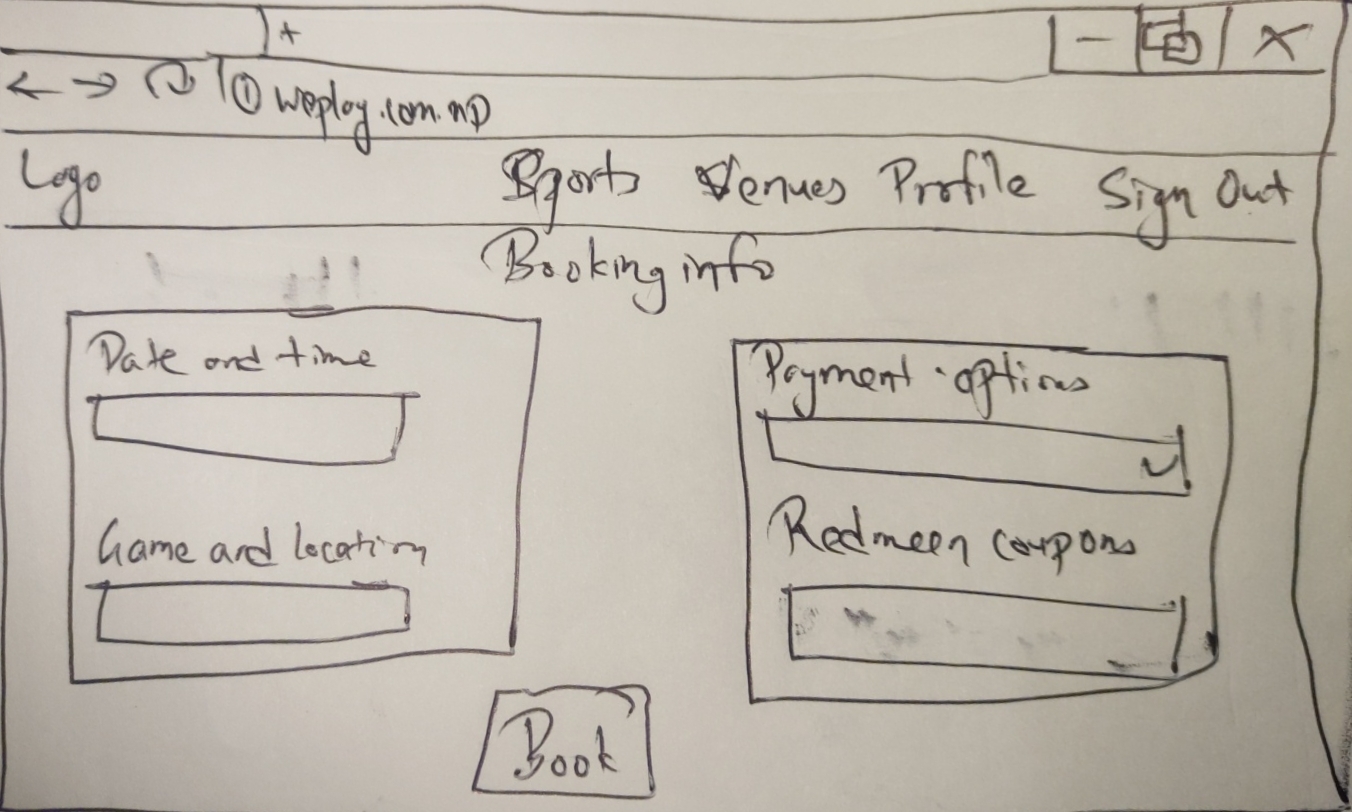 +
weplay.com.np
Logo Sports Venues Profile Sign Out
Booking info
Date and time
Payment options
Game and location
Redmeen coupons
Book